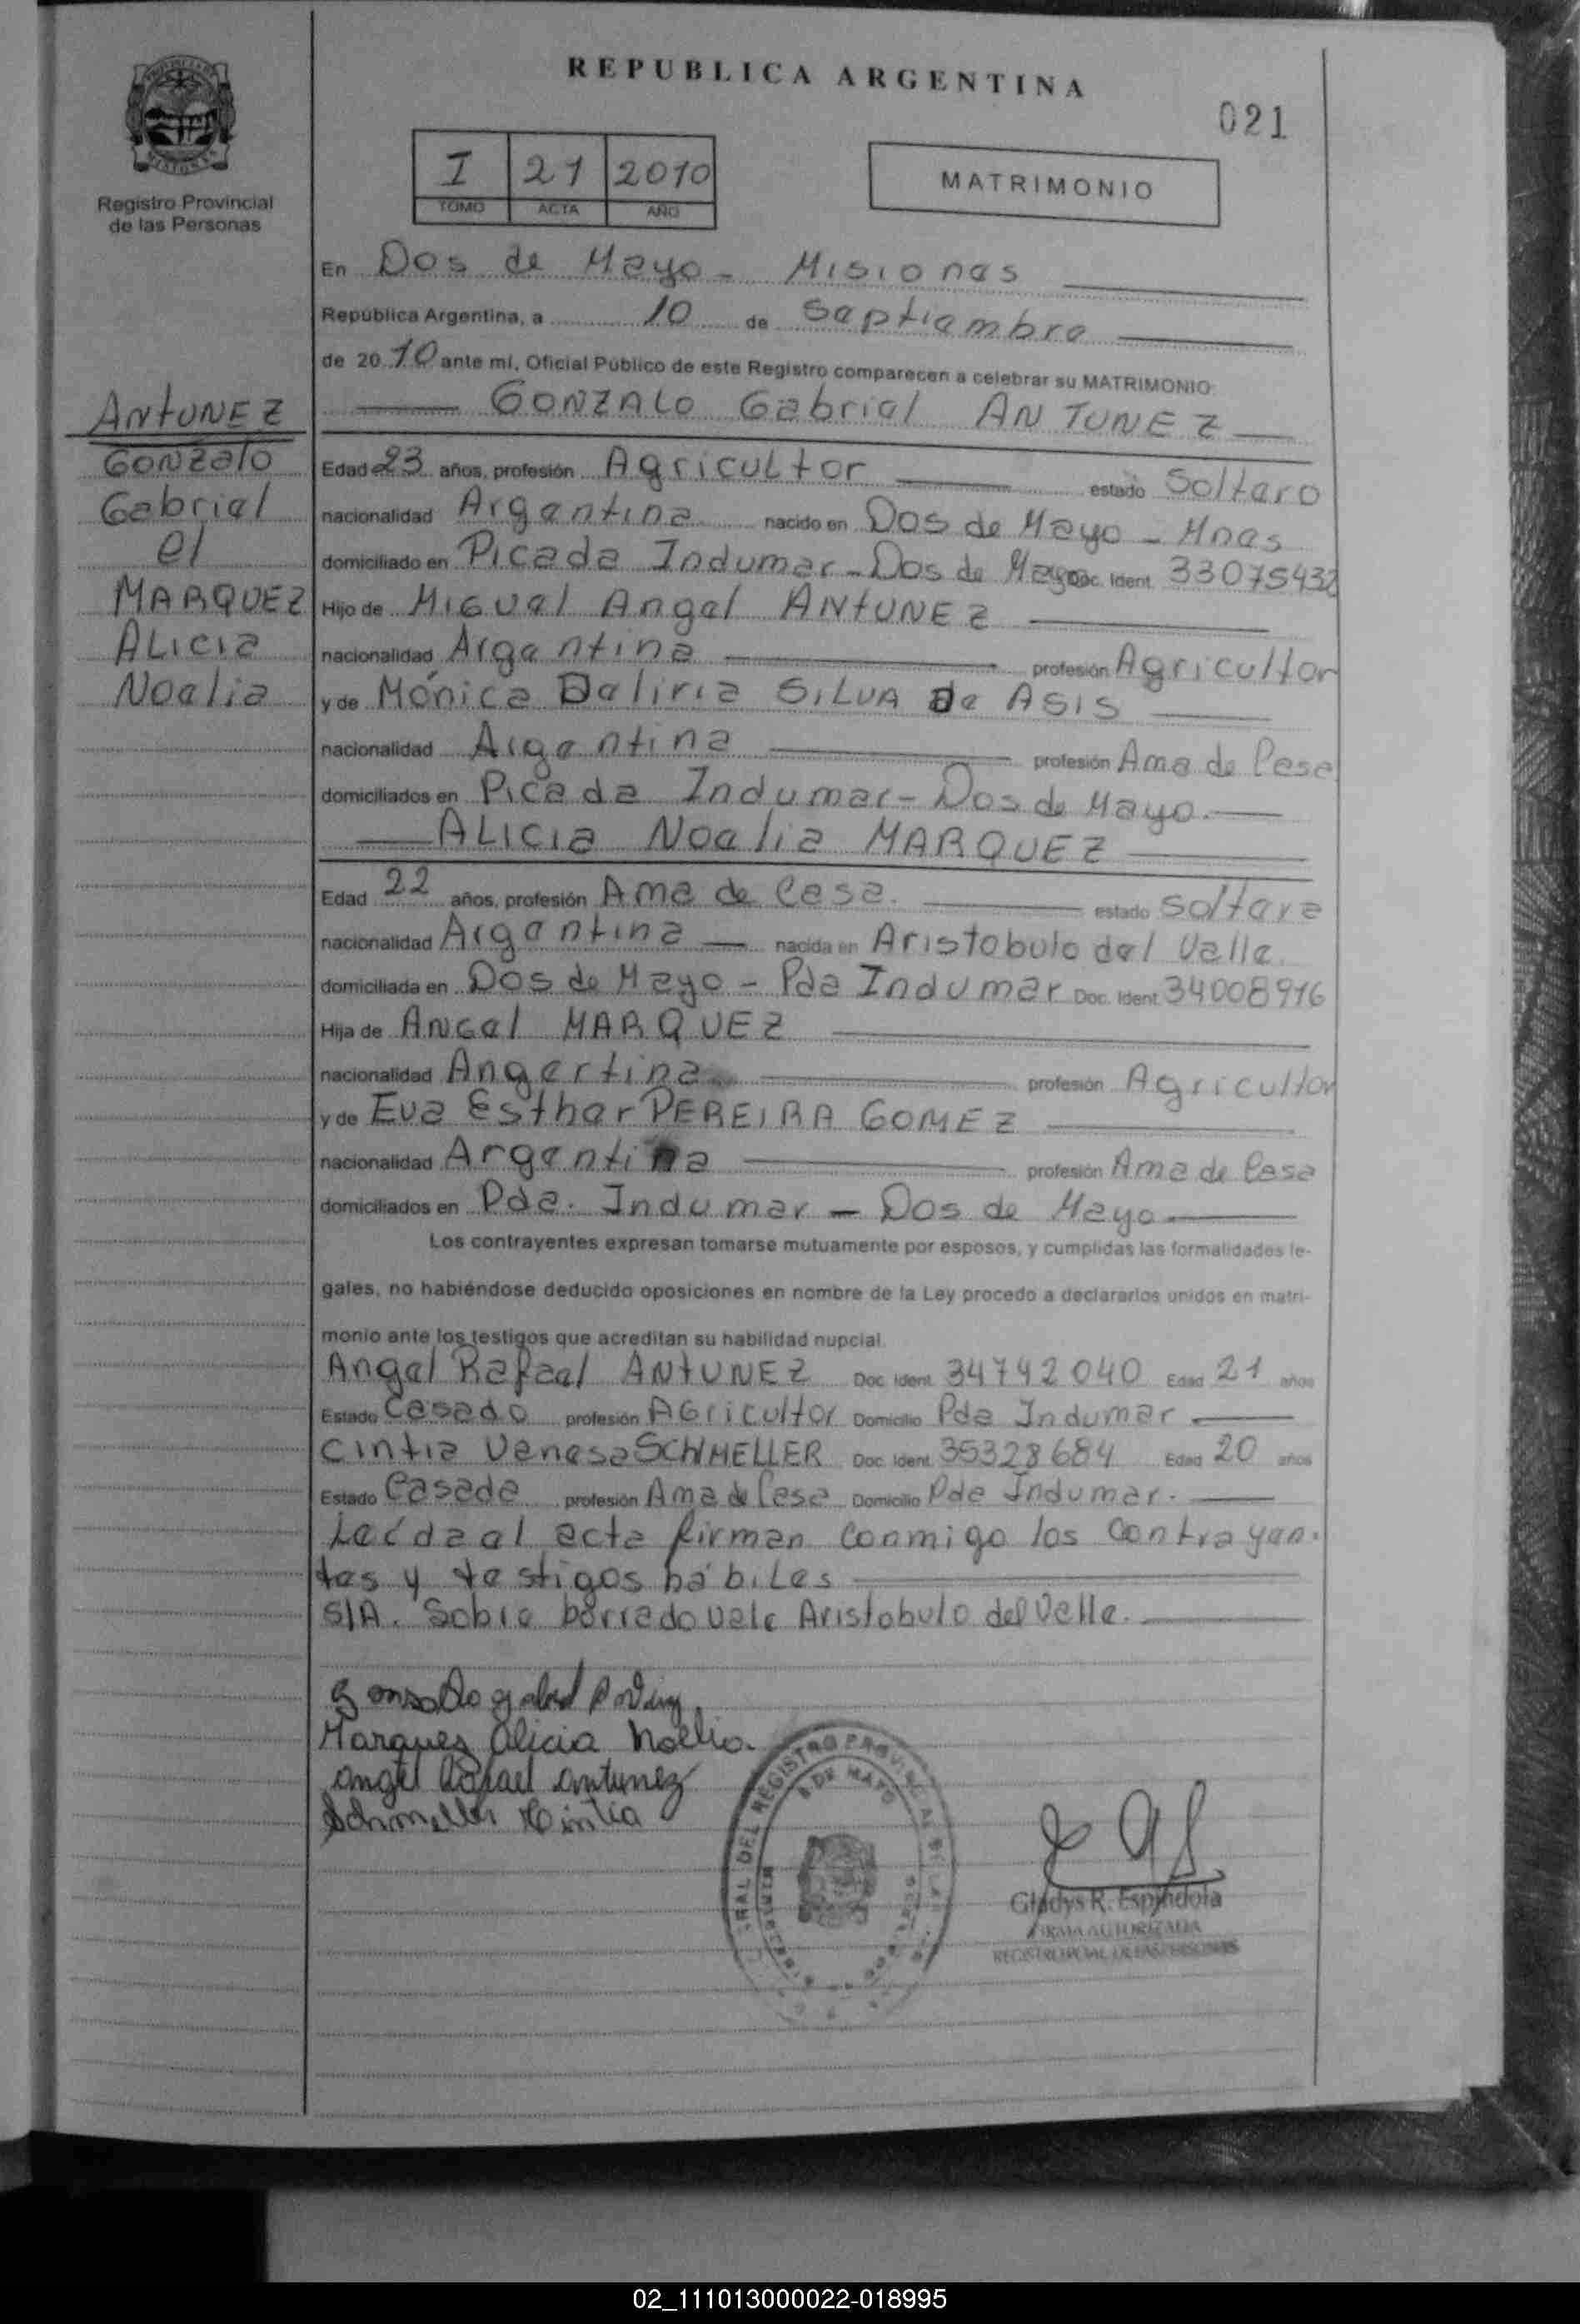 REPUBLICA ARGENTINA
021
I 21 2010
TOMO ACTA AÑO
MATRIMONIO
Registro Provincial
de las Personas
ANTUNEZ
GONZALO
Gabriel
el
MARQUEZ
ALICIA
Noelia
En Dos de Mayo - Misiones
República Argentina, a 10 de Septiembre
de 2010 ante mí, Oficial Público de este Registro comparecen a celebrar su MATRIMONIO
GONZALO Gabriel ANTUNEZ
Edad 23 años, profesión Agricultor estado Soltero
nacionalidad Argentina nacido en Dos de Mayo - Mnes
domiciliado en Picada Indumar - Dos de Mayo Doc. Ident. 33075432
Hijo de Miguel Angel ANTUNEZ
nacionalidad Argentina profesión Agricultor
y de Mónica Deliria SILVA De ASIS
nacionalidad Argentina profesión Ama de Casa
domiciliados en Picada Indumar - Dos de Mayo.
ALICIA Noelia MARQUEZ
Edad 22 años, profesión Ama de Casa. estado soltera
nacionalidad Argentina nacida en Aristobulo del Valle.
domiciliada en Dos de Mayo - Pda Indumar Doc. Ident. 34008916
Hija de Angel MARQUEZ
nacionalidad Angertina profesión Agricultor
y de Eva Esther PEREIRA GOMEZ
nacionalidad Argentina profesión Ama de Casa
domiciliados en Pda. Indumar - Dos de Mayo
Los contrayentes expresan tomarse mutuamente por esposos, y cumplidas las formalidades le-
gales, no habiéndose deducido oposiciones en nombre de la Ley procedo a declararlos unidos en matri-
monio ante los testigos que acreditan su habilidad nupcial.
Angel Rafael ANTUNEZ Doc. Ident. 34742040 Edad 21 años
Estado Casado profesión Agricultor Domicilio Pda Indumar
Cintia Vanesa SCHMELLER Doc. Ident. 35328684 Edad 20 años
Estado Casada profesión Ama de Casa Domicilio Pda Indumar.
Leída el acta firman conmigo los contrayen-
tes y testigos hábiles
S/A. Sobre borrado vale Aristobulo del Valle.
Gonzalo gabriel
Marques Alicia Noelia
Angel Rafael Antunez
Schmeller Cintia
RAL DEL REGISTRO PROVINCIAL DE LAS
DE MAYO
Gladys R. Espíndola
FIRMA AUTORIZADA
REGISTRO PCIAL. DE LAS PERSONAS
02_111013000022-018995